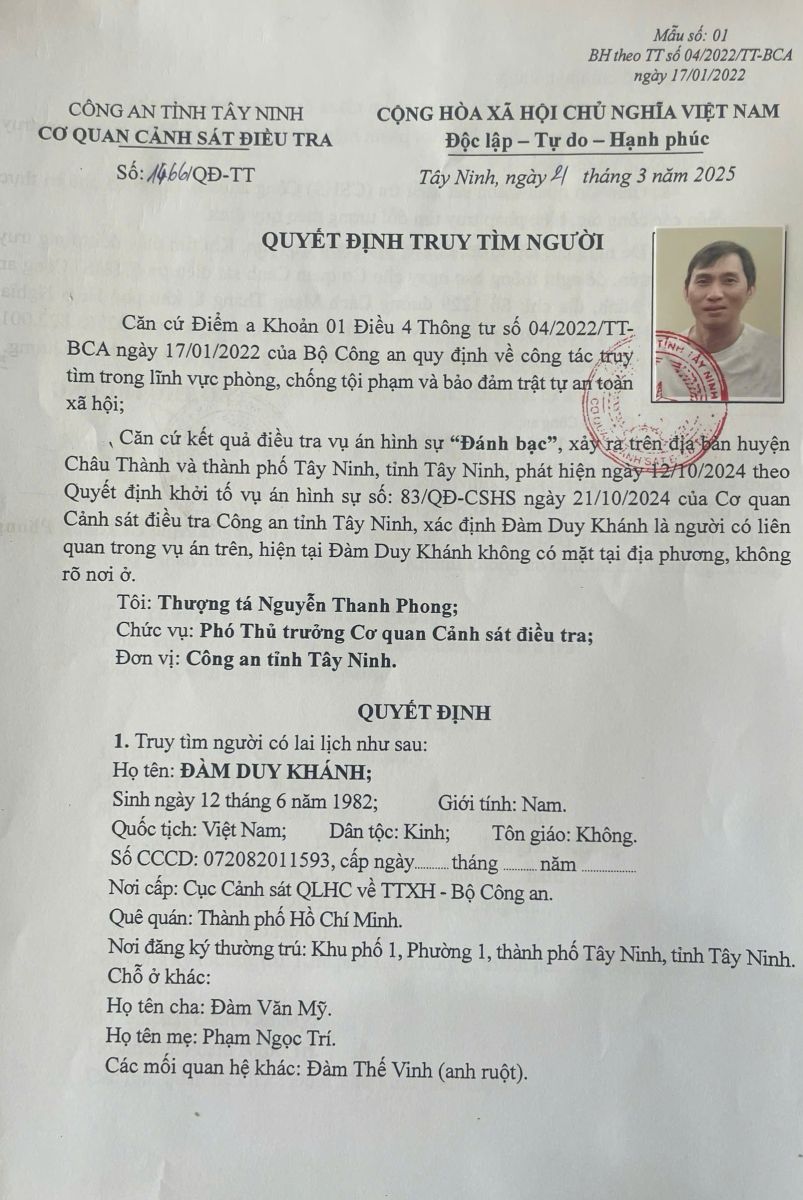 Mẫu số: 01
BH theo TT số 04/2022/TT-BCA
ngày 17/01/2022
CÔNG AN TỈNH TÂY NINH
CƠ QUAN CẢNH SÁT ĐIỀU TRA
Số: 1466/QĐ-TT
CỘNG HÒA XÃ HỘI CHỦ NGHĨA VIỆT NAM
Độc lập – Tự do – Hạnh phúc
Tây Ninh, ngày 21 tháng 3 năm 2025
QUYẾT ĐỊNH TRUY TÌM NGƯỜI
Căn cứ Điểm a Khoản 01 Điều 4 Thông tư số 04/2022/TT-
BCA ngày 17/01/2022 của Bộ Công an quy định về công tác truy
tìm trong lĩnh vực phòng, chống tội phạm và bảo đảm trật tự an toàn
xã hội;
Căn cứ kết quả điều tra vụ án hình sự “Đánh bạc”, xảy ra trên địa bàn huyện
Châu Thành và thành phố Tây Ninh, tỉnh Tây Ninh, phát hiện ngày 12/10/2024 theo
Quyết định khởi tố vụ án hình sự số: 83/QĐ-CSHS ngày 21/10/2024 của Cơ quan
Cảnh sát điều tra Công an tỉnh Tây Ninh, xác định Đàm Duy Khánh là người có liên
quan trong vụ án trên, hiện tại Đàm Duy Khánh không có mặt tại địa phương, không
rõ nơi ở.
Tôi: Thượng tá Nguyễn Thanh Phong;
Chức vụ: Phó Thủ trưởng Cơ quan Cảnh sát điều tra;
Đơn vị: Công an tỉnh Tây Ninh.
QUYẾT ĐỊNH
1. Truy tìm người có lai lịch như sau:
Họ tên: ĐÀM DUY KHÁNH;
Sinh ngày 12 tháng 6 năm 1982; Giới tính: Nam.
Quốc tịch: Việt Nam; Dân tộc: Kinh; Tôn giáo: Không.
Số CCCD: 072082011593, cấp ngày.......... tháng .......... năm ..................
Nơi cấp: Cục Cảnh sát QLHC về TTXH - Bộ Công an.
Quê quán: Thành phố Hồ Chí Minh.
Nơi đăng ký thường trú: Khu phố 1, Phường 1, thành phố Tây Ninh, tỉnh Tây Ninh.
Chỗ ở khác:
Họ tên cha: Đàm Văn Mỹ.
Họ tên mẹ: Phạm Ngọc Trí.
Các mối quan hệ khác: Đàm Thế Vinh (anh ruột).